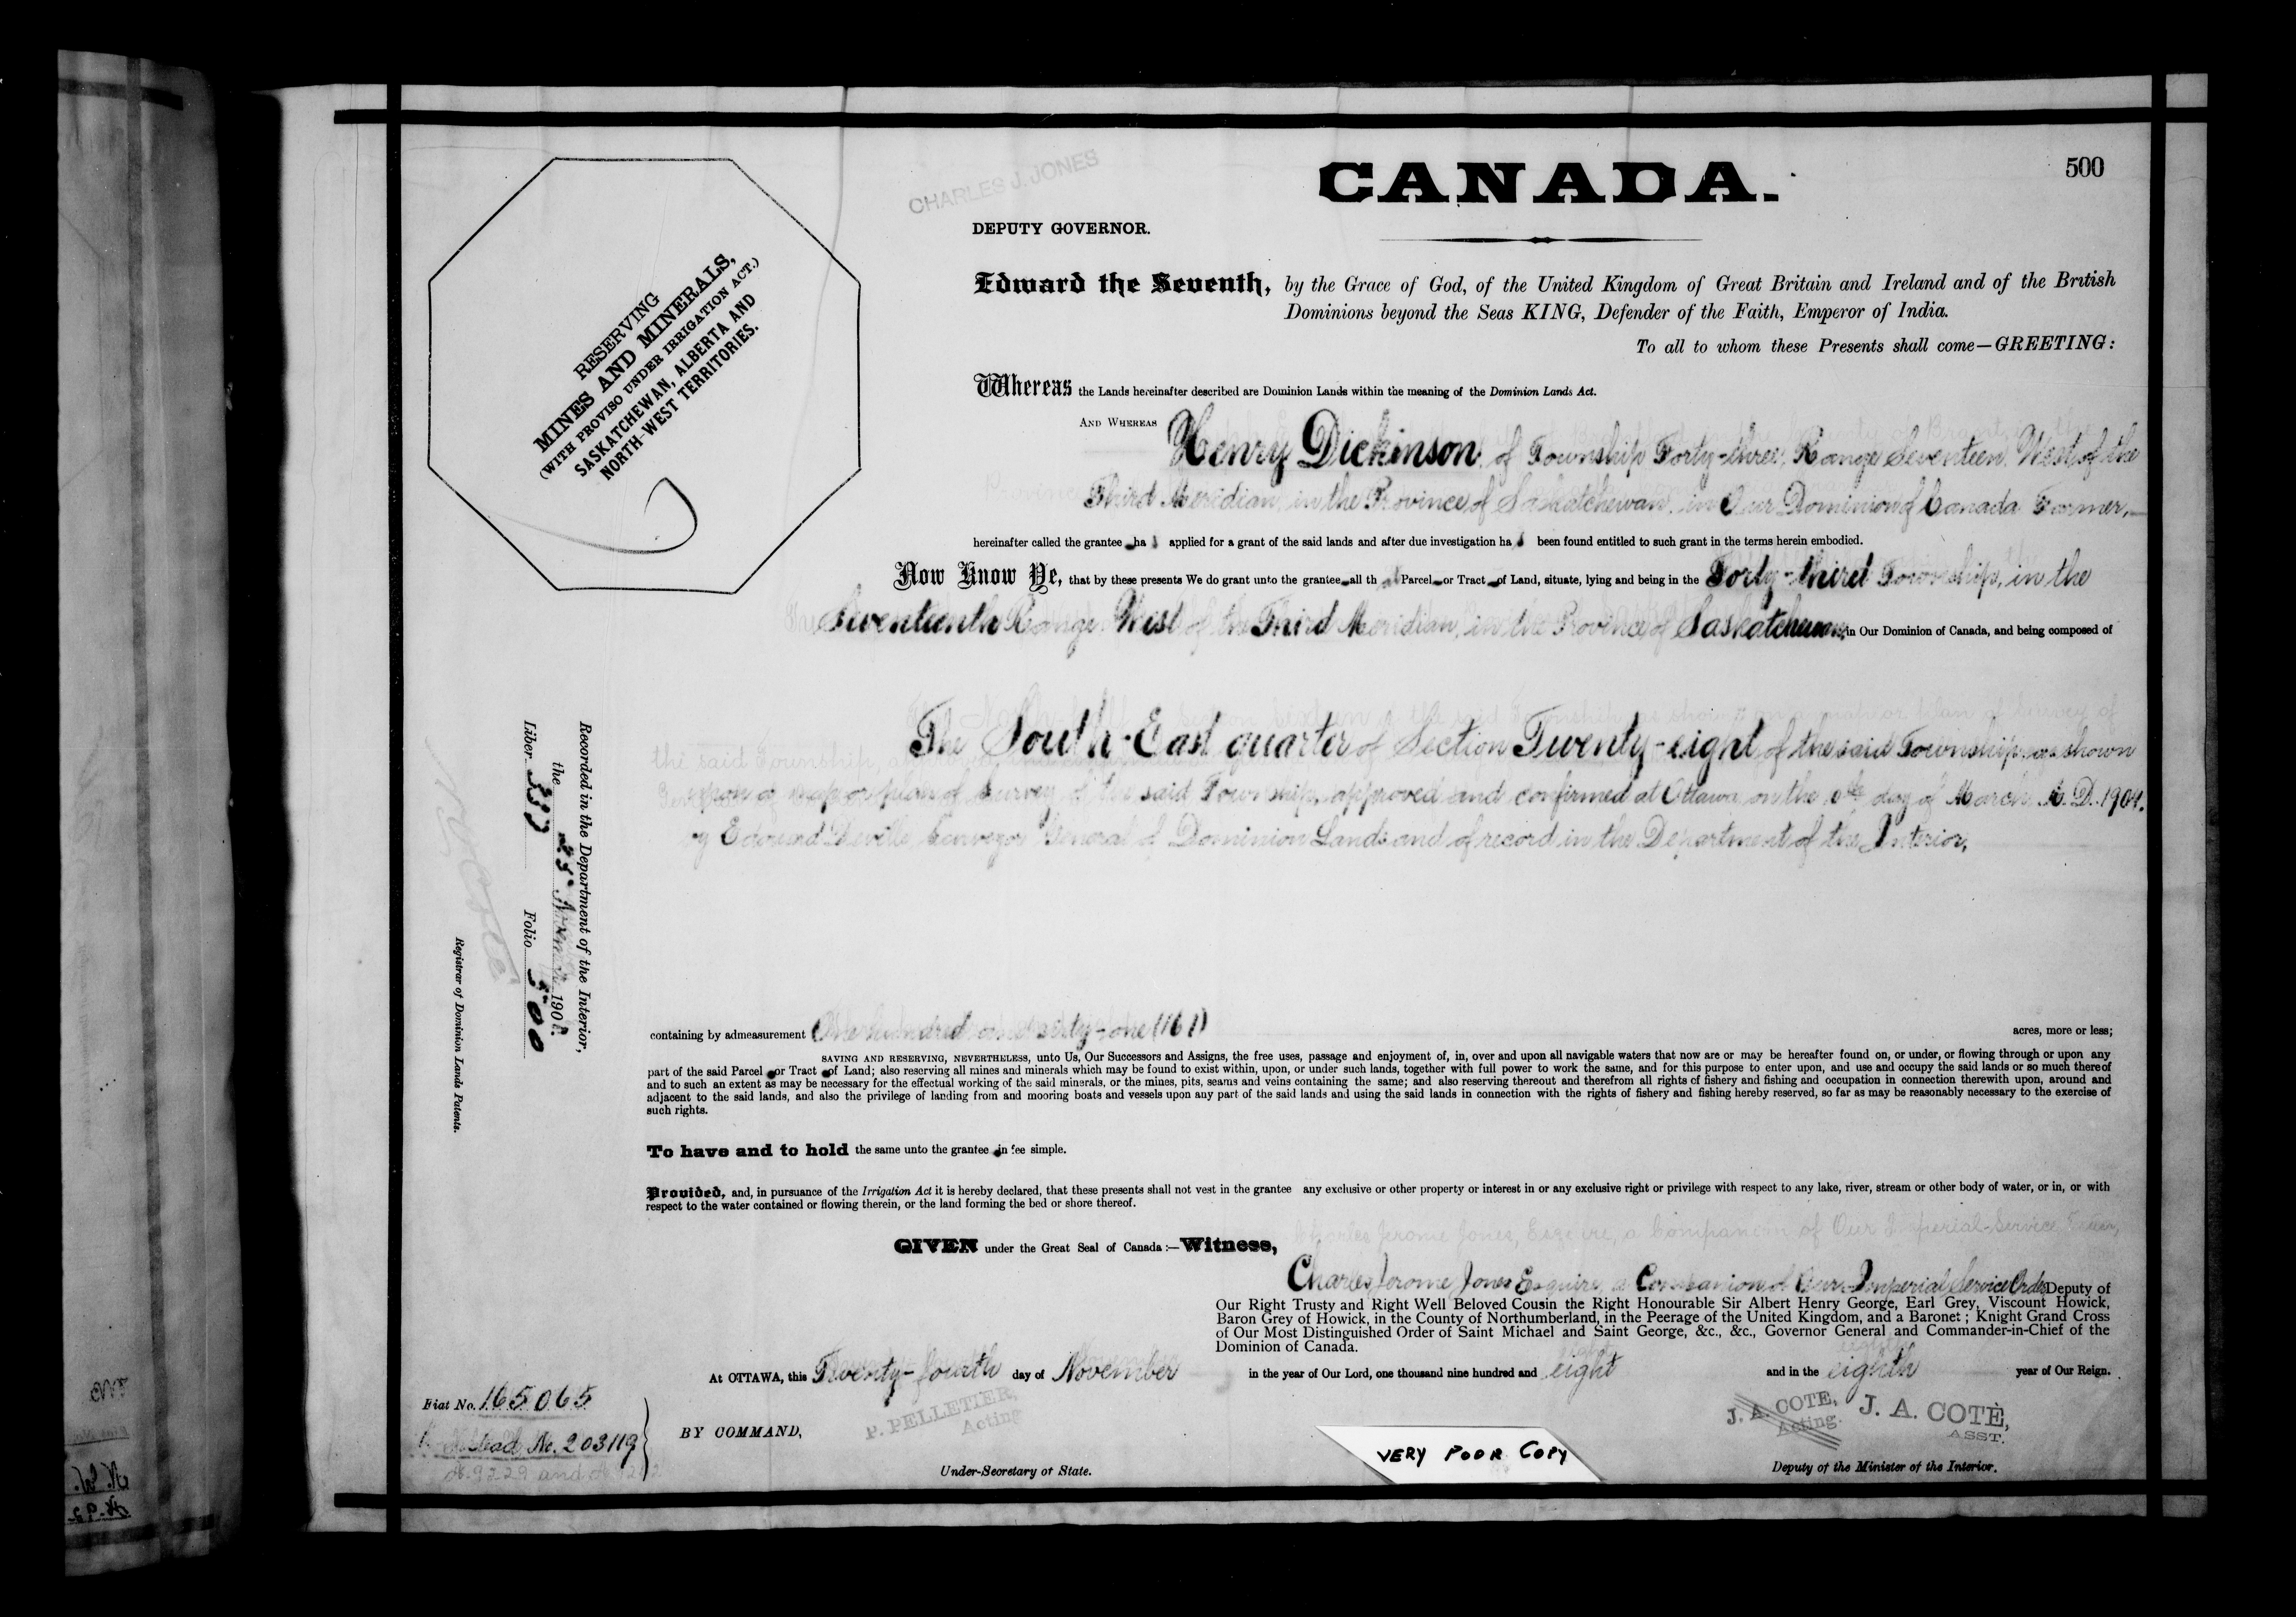 500
CHARLES J. JONES
CANADA.
DEPUTY GOVERNOR.
RESERVING
MINES AND MINERALS,
(WITH PROVISO UNDER IRRIGATION ACT.)
SASKATCHEWAN, ALBERTA AND
NORTH-WEST TERRITORIES.
Edward the Seventh, by the Grace of God, of the United Kingdom of Great Britain and Ireland and of the British
Dominions beyond the Seas KING, Defender of the Faith, Emperor of India.
To all to whom these Presents shall come—GREETING:
Whereas the Lands hereinafter described are Dominion Lands within the meaning of the Dominion Lands Act.
AND WHEREAS Henry Dickinson, of Township Forty-three, Range Seventeen, West of the
Third Meridian, in the Province of Saskatchewan, in Our Dominion of Canada Farmer,
hereinafter called the grantee ha s applied for a grant of the said lands and after due investigation ha s been found entitled to such grant in the terms herein embodied.
Now Know Ye, that by these presents We do grant unto the grantee all th at Parcel or Tract of Land, situate, lying and being in the Forty-third Township, in the
Seventeenth Range West of the Third Meridian, in the Province of Saskatchewan, in Our Dominion of Canada, and being composed of
The South-East quarter of Section Twenty-eight of the said Township, as shown
upon a map or plan of Survey of the said Township, approved and confirmed at Ottawa, on the day of March A.D. 1904.
by Edouard Deville, Surveyor General of Dominion Lands and of record in the Department of the Interior.
Recorded in the Department of the Interior,
the 25 November 1908.
Liber Folio 500
Registrar of Dominion Lands Patents.
containing by admeasurement One hundred and sixty-one (161) acres, more or less;
SAVING AND RESERVING, NEVERTHELESS, unto Us, Our Successors and Assigns, the free uses, passage and enjoyment of, in, over and upon all navigable waters that now are or may be hereafter found on, or under, or flowing through or upon any
part of the said Parcel or Tract of Land; also reserving all mines and minerals which may be found to exist within, upon, or under such lands, together with full power to work the same, and for this purpose to enter upon, and use and occupy the said lands or so much thereof
and to such an extent as may be necessary for the effectual working of the said minerals, or the mines, pits, seams and veins containing the same; and also reserving thereout and therefrom all rights of fishery and fishing and occupation in connection therewith upon, around and
adjacent to the said lands, and also the privilege of landing from and mooring boats and vessels upon any part of the said lands and using the said lands in connection with the rights of fishery and fishing hereby reserved, so far as may be reasonably necessary to the exercise of
such rights.
To have and to hold the same unto the grantee in fee simple.
Provided, and, in pursuance of the Irrigation Act it is hereby declared, that these presents shall not vest in the grantee any exclusive or other property or interest in or any exclusive right or privilege with respect to any lake, river, stream or other body of water, or in, or with
respect to the water contained or flowing therein, or the land forming the bed or shore thereof.
GIVEN under the Great Seal of Canada:—Witness,
Charles Jerome Jones Esquire, a Companion of Our Imperial Service Order Deputy of
Our Right Trusty and Right Well Beloved Cousin the Right Honourable Sir Albert Henry George, Earl Grey, Viscount Howick,
Baron Grey of Howick, in the County of Northumberland, in the Peerage of the United Kingdom, and a Baronet; Knight Grand Cross
of Our Most Distinguished Order of Saint Michael and Saint George, &c., &c., Governor General and Commander-in-Chief of the
Dominion of Canada.
At OTTAWA, this Twenty-fourth day of November in the year of Our Lord, one thousand nine hundred and eight and in the eighth year of Our Reign.
Fiat No. 165065
BY COMMAND,
P. PELLETIER,
Acting
J. A. COTE,
Acting.
J. A. COTÉ,
ASST.
No. 203119
VERY POOR COPY
Under-Secretary of State.
Deputy of the Minister of the Interior.